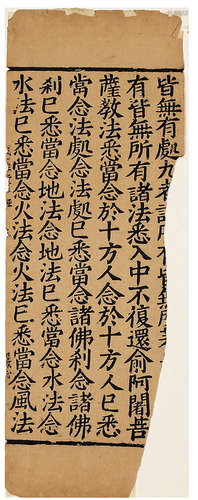 皆無有處九者
有皆無所有諸法悉入中不復還俞阿闍菩
薩教法悉當念於十方人念於十方人已悉
當念法處念法處已悉當念諸佛刹念諸佛
刹已悉當念地法念地法已悉當念水法念
水法已悉當念火法念火法已悉當念風法